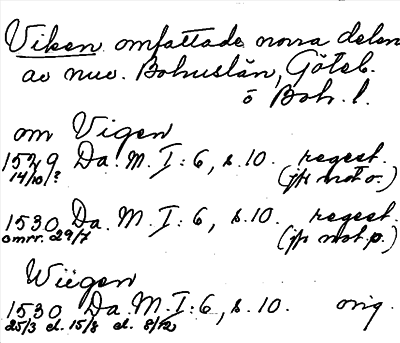 Viken omfattade norra delen
av nuv. Bohuslän, Göteb.
o Boh. l.
om Vigen
1529 Da. M. I: 6, s. 10. regest.
14/10/? (jfr mot o.)
1530 Da. M. I: 6, s. 10. regest.
omkr. 29/7 (jfr mot. p.)
Wiigen
1530 Da. M. I: 6, s. 10. orig.
25/3 el. 15/8 el. 8/12